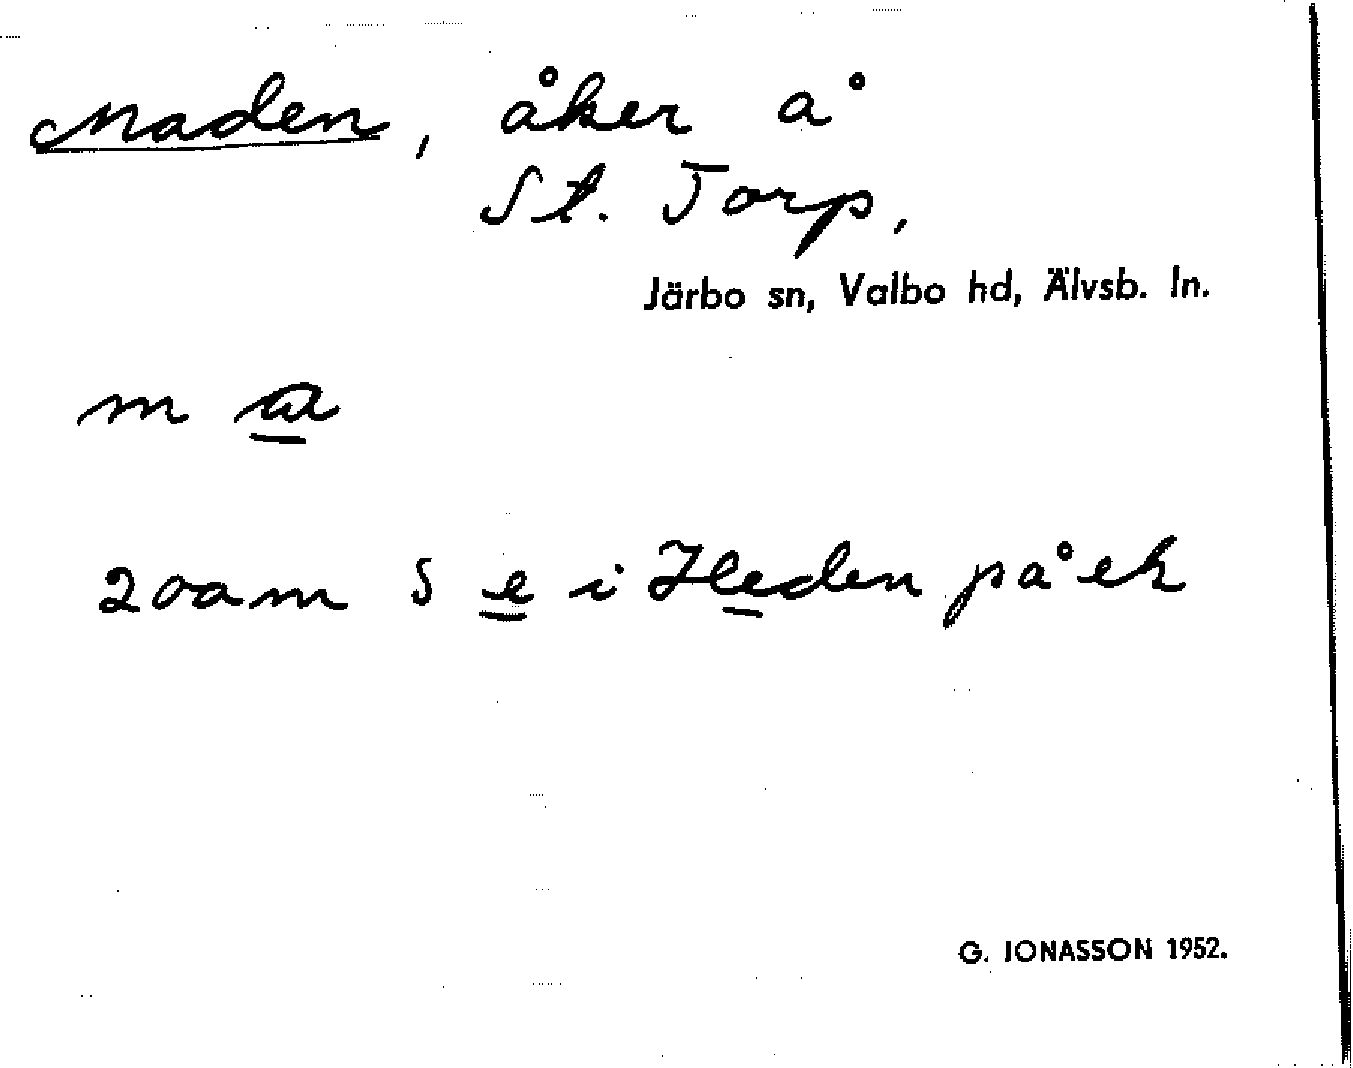 Maden, åker å
St. Torp,
Järbo sn, Valbo hd, Älvsb. ln.
m a
200 m S e i Heden på ek
G. JONASSON 1952.